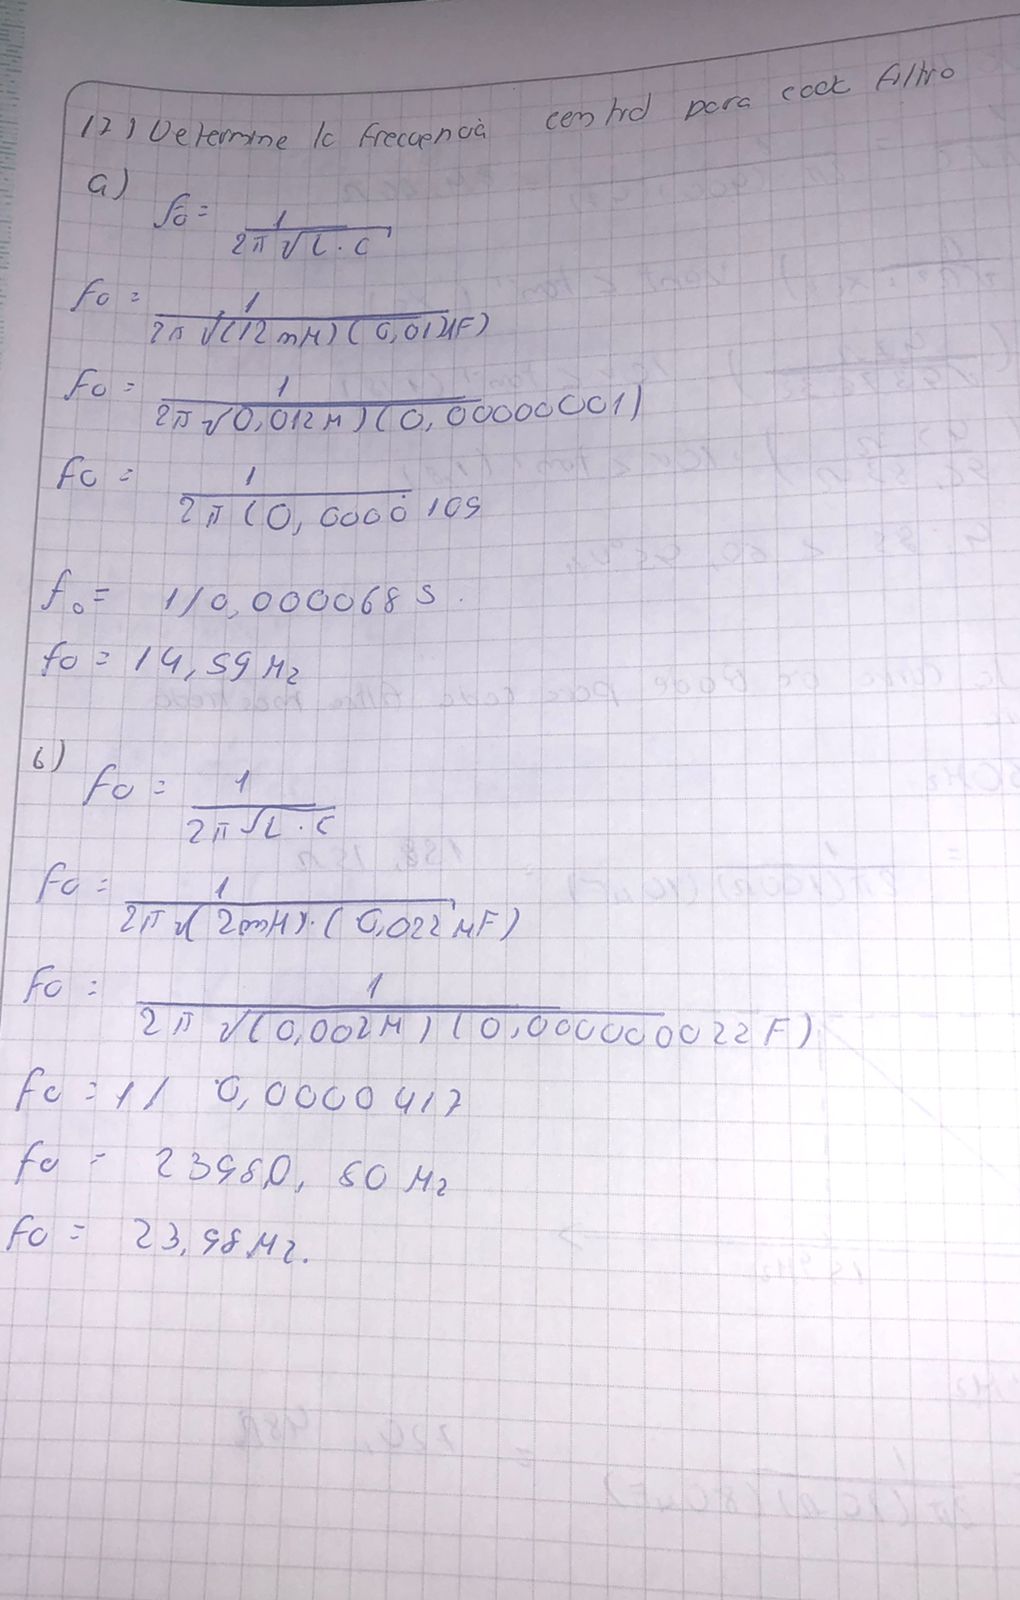 17) Determine la frecuencia central para cada filtro
a)
fo = 1 / 2π √L · C
fo = 1 / 2π √(12mH)(0,01μF)
fo = 1 / 2π √0,012H)(0,00000001)
fo = 1 / 2π (0,0000109
fo = 1/0,000068 s.
fo = 14,59 Hz
b)
fo = 1 / 2π √L · C
fo = 1 / 2π √(2mH)·(0,022μF)
fo = 1 / 2π √(0,002H)(0,000000022F)
fo = 1/ 0,0000417
fo = 23980, 60 Hz
fo = 23,98 Hz.